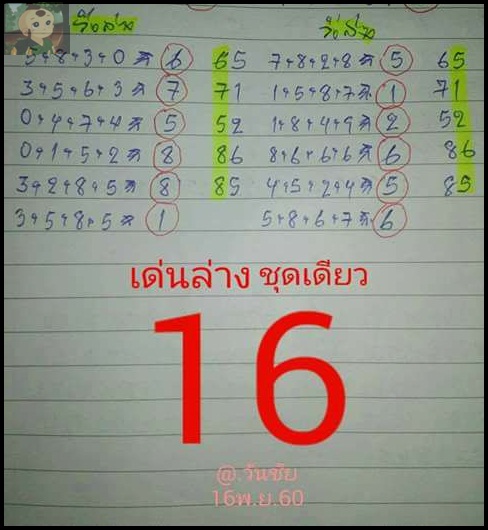 วิ่งล่าง วิ่งล่าง
5+8+3+0 = 6 65 7+8+2+8 = 5 65
3+5+6+3 = 7 71 1+5+8+7 = 1 71
0+4+7+4 = 5 52 1+8+4+9 = 2 52
0+1+5+2 = 8 86 8+6+6+6 = 6 86
3+2+8+5 = 8 85 4+5+2+4 = 5 85
3+5+8+5 = 1 5+8+6+7 = 6
เด่นล่าง ชุดเดียว
16
@.วันชัย
16พ.ย.60